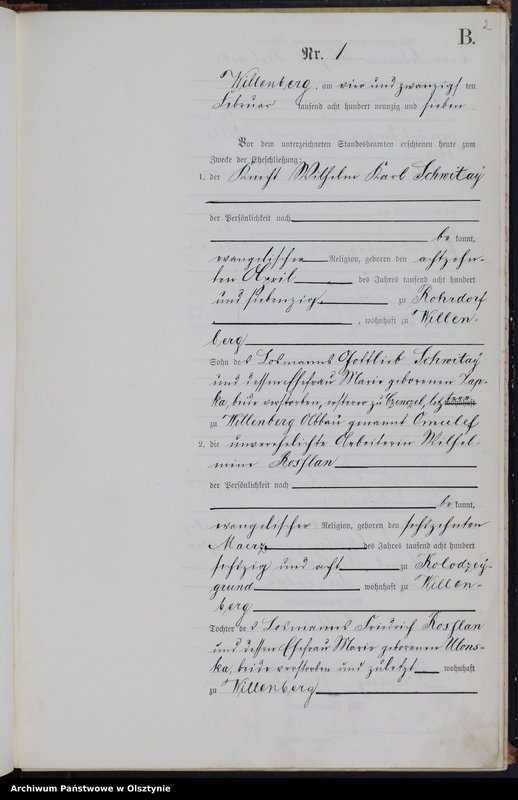 B. 2
Nr. 1
Willenberg, am vier und zwanzigsten
Februar tausend acht hundert neunzig und sieben
Vor dem unterzeichneten Standesbeamten erschienen heute zum
Zwecke der Eheschließung:
1. der Knecht Wilhelm Karl Schwitay
der Persönlichkeit nach
be kannt,
evangelischer Religion, geboren den achtzehn-
ten April des Jahres tausend acht hundert
und siebenzig zu Rohrdorf
, wohnhaft zu Willen-
berg
Sohn des Losmanns Gottlieb Schwitay
und dessen Ehefrau Marie geborenen Zap-
ka, beide verstorben, ersterer zu letztere
zu Willenberg Abbau genannt Omulef
2. die unverehelichte Arbeiterin Wilhel-
mine Rosslan
der Persönlichkeit nach
be kannt,
evangelischer Religion, geboren den sechszehnten
Maerz des Jahres tausend acht hundert
sechszig und acht zu Kolodzey-
grund wohnhaft zu Willen-
berg
Tochter des Losmanns Friedrich Rosslan
und dessen Ehefrau Marie geborenen Ulons-
ka, beide verstorben und zuletzt wohnhaft
zu Willenberg
Archiwum Państwowe w Olsztynie